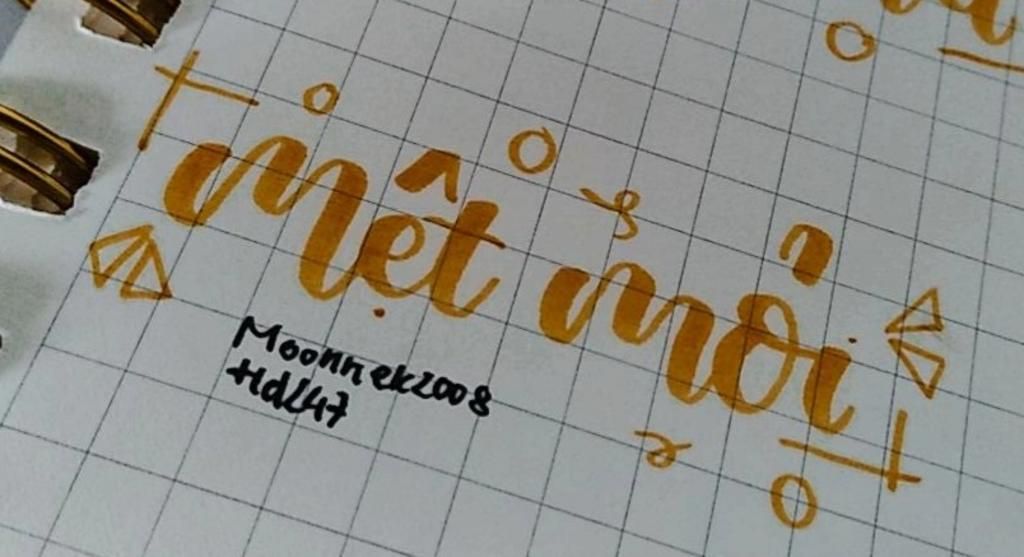 mệt mỏi
Moonnek2008
Hd247